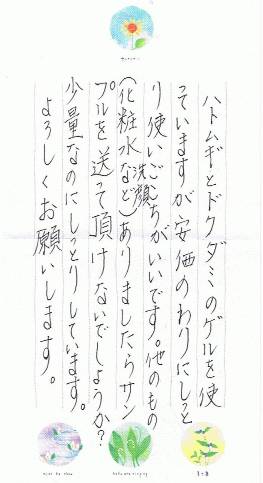 ハトムギとドクダミのゲルを使
っていますが安価のわりにしっと
り使いごこちがいいです。他のもの
(化粧水洗顔など)ありましたらサン
プルを送って頂けないでしょうか?
少量なのにしっとりしています。
よろしくお願いします。